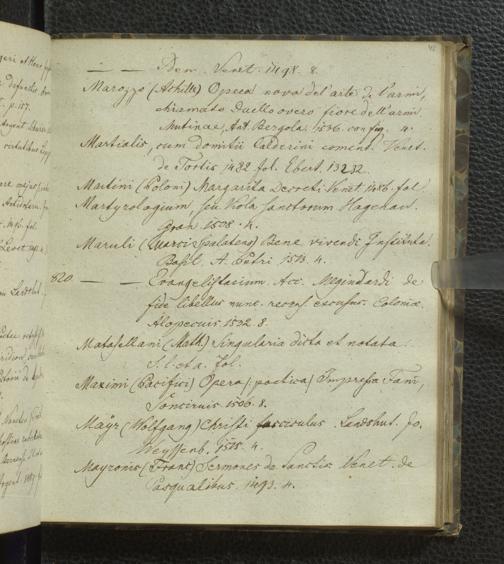 — — Idem. Venet. 1498. 8.
Marozzo (Achille) Opera nova del'arte de l'armi,
chiamata duello overo fiore dell'armi
Mutinae, Ant. Bergola. 1536. con fig. 4.
Martialis, cum Domitii Calderini coment. Venet.
de Tortis 1482 fol. Ebert. 13232.
Martini (Poloni) Margarita Decreti Venet. 1486. fol.
Martyrologium, seu Viola Sanctorum Hagenau.
Gran. 1508. 4.
Maruli (Marci Spalatens) Bene vivendi Instituta.
Basil. A. Petri 1513. 4.
820. — — Evangelistarium Acc. de
fide libellus nunc recens excusus. Coloniae,
Alopecius 1532. 8.
Matasellani (Math) Singularia dicta et notata.
S. l. et a. fol.
Maximi (Pacifici) Opera (poetica) Impressa Fani,
Soncinus 1506. 8.
Mäyr (Wolfgang) Christi fasciculus. Landshut. Jo.
Weyssenb. 1515. 4.
Mayronis (Franc) Sermones de Sanctis Venet. de
Pasqualibus. 1493. 4.